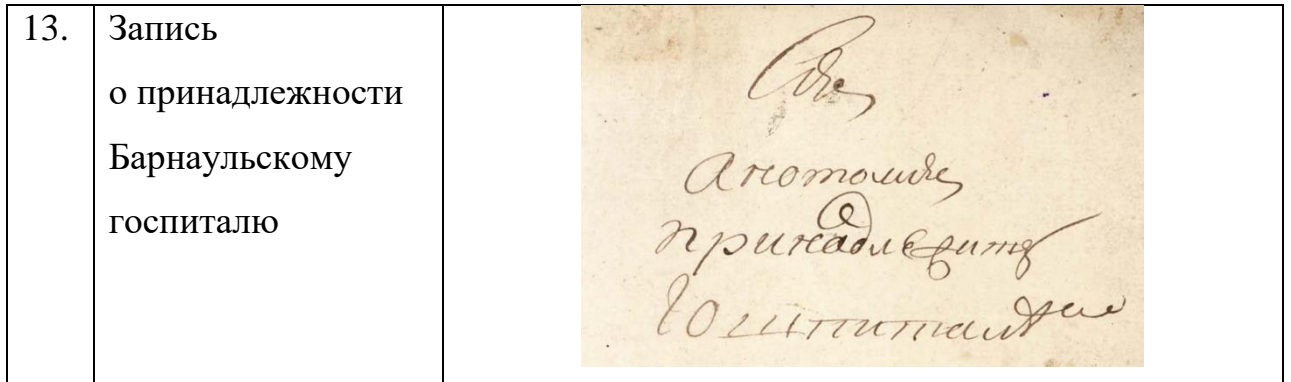 13.
Запись
о принадлежности
Барнаульскому
госпиталю
Сия
анотомия
принадлежитъ